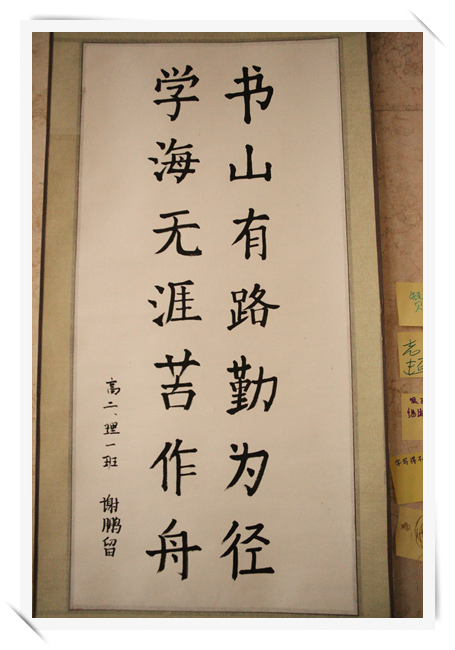 书山有路勤为径
学海无涯苦作舟
高二、理一班 谢鹏留